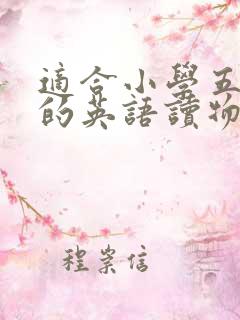 適合小學五
的英語讀物
程崇信